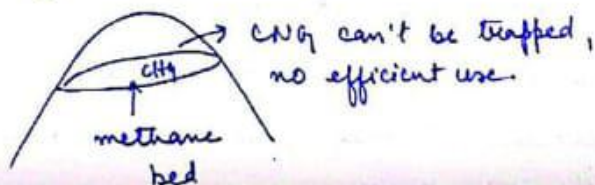 → CNG can't be trapped,
no efficient use.
CH4
methane
bed